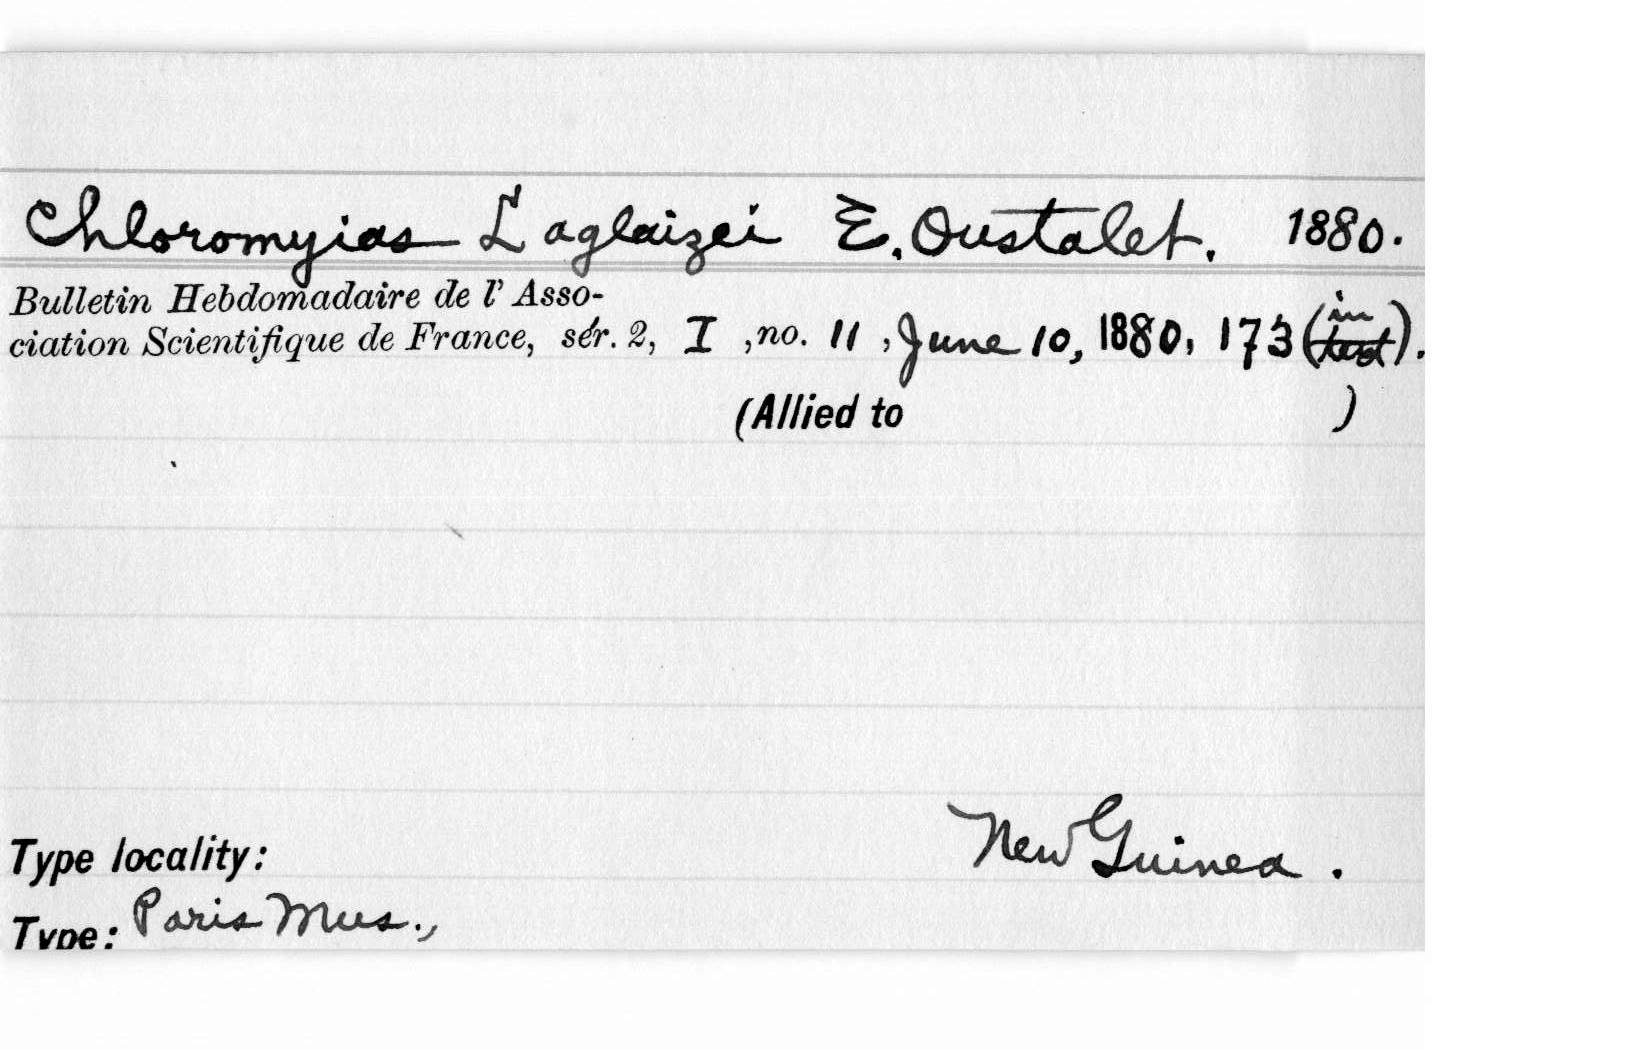 Chloromyias Laglaizei E. Oustalet. 1880.
Bulletin Hebdomadaire de l' Asso-
ciation Scientifique de France, sér. 2, I , no. 11 , June 10, 1880, 173 (in text).
(Allied to )
Type locality: New Guinea .
Type: Paris Mus.,